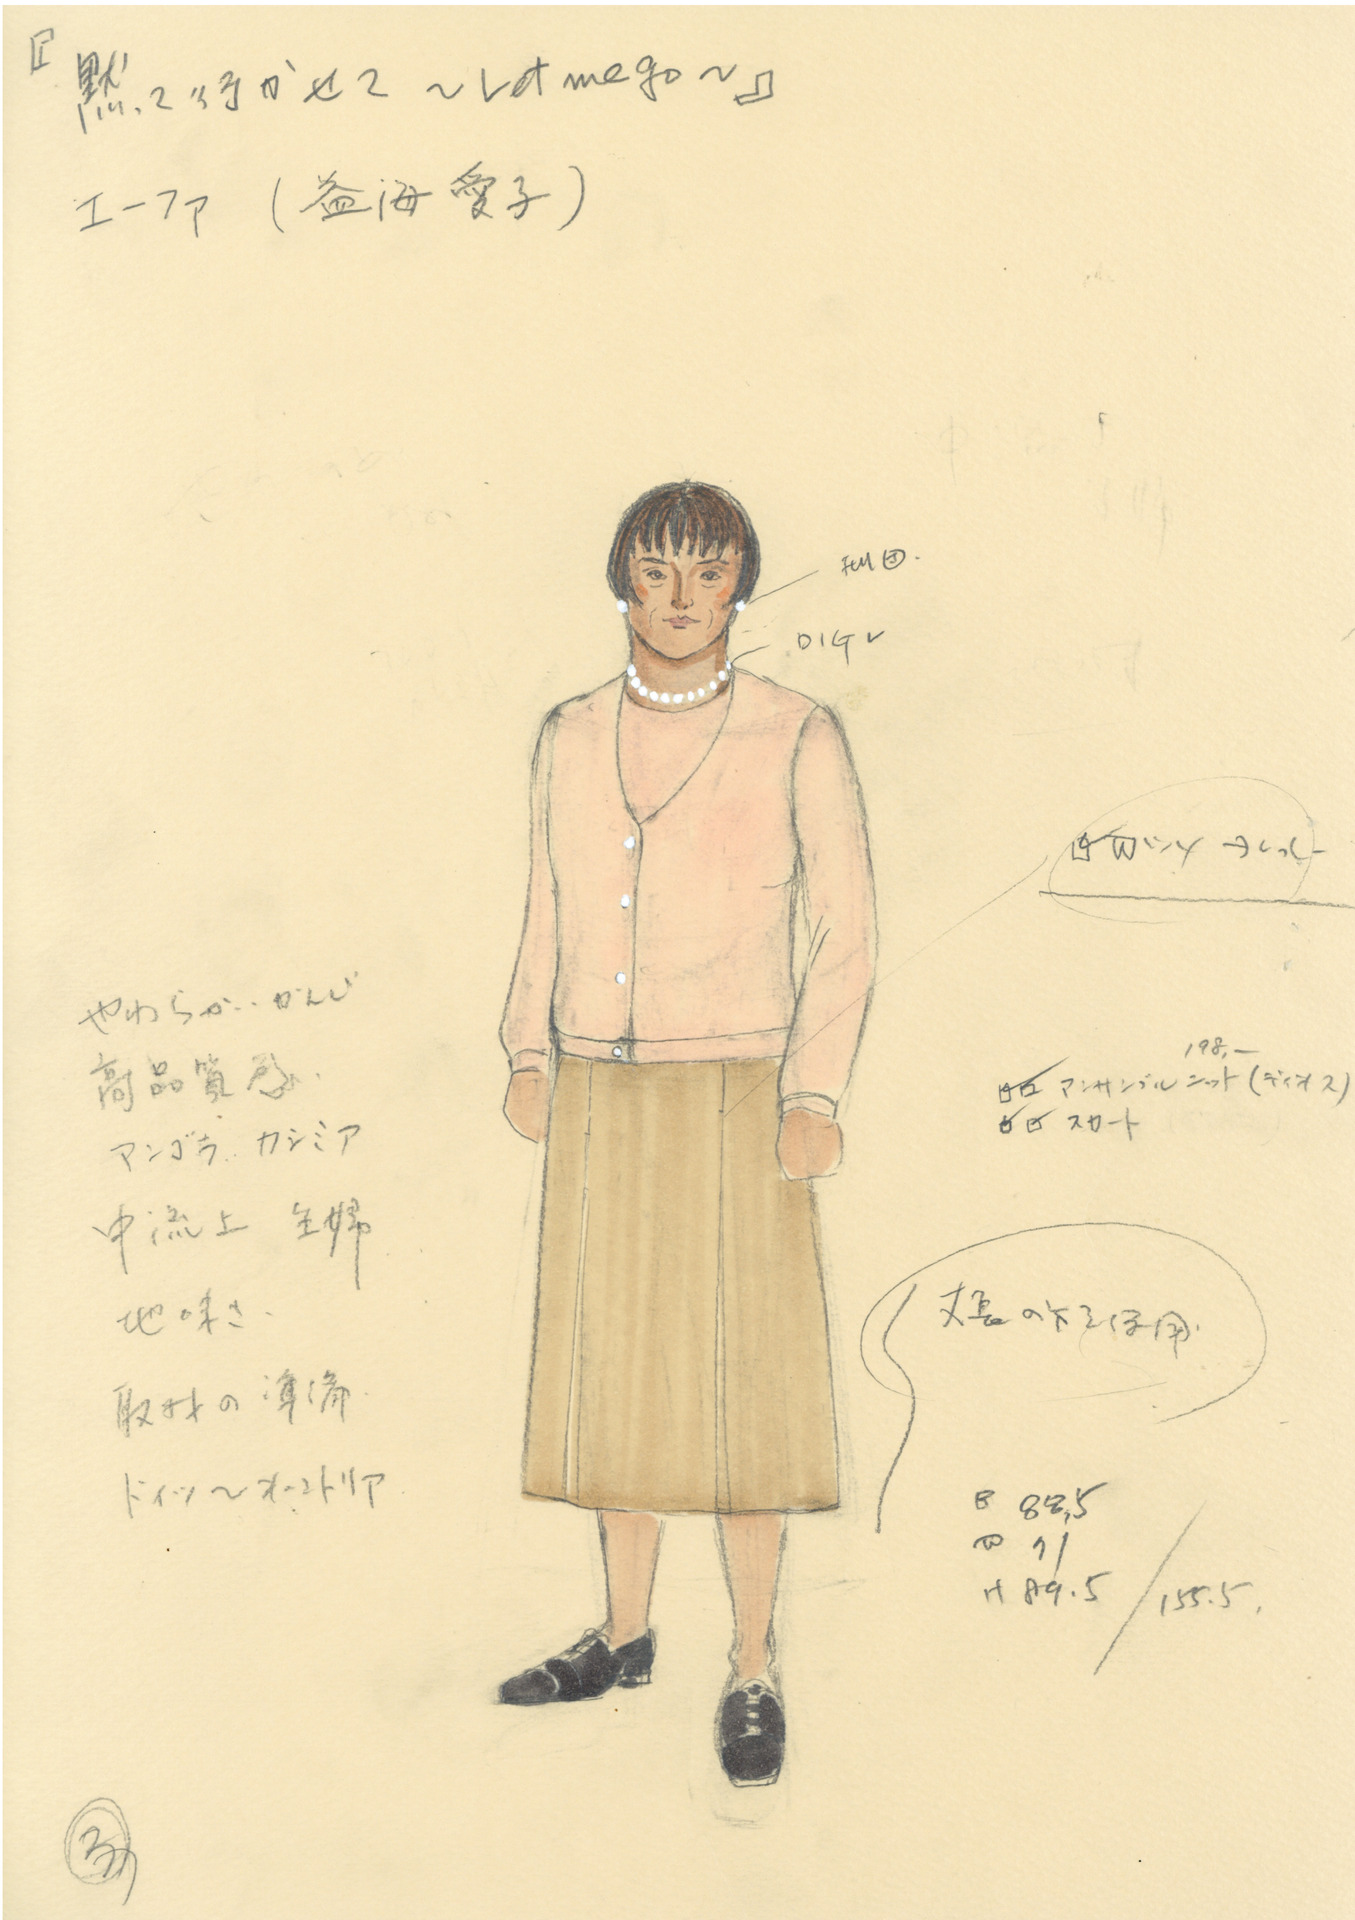 『黙って行かせて 〜Let me go〜』
エーファ (益海愛子)
劇団.
DIGL
198,—
アンサンブルニット(ディオス)
スカート
やわらかいかんじ
高品質感.
アンゴラ. カシミア
中流上 主婦
地味さ.
丈長の方を使用.
取材の準備.
ドイツ〜オーストリア.
B 88,5
W 71
H 89.5 / 155.5.